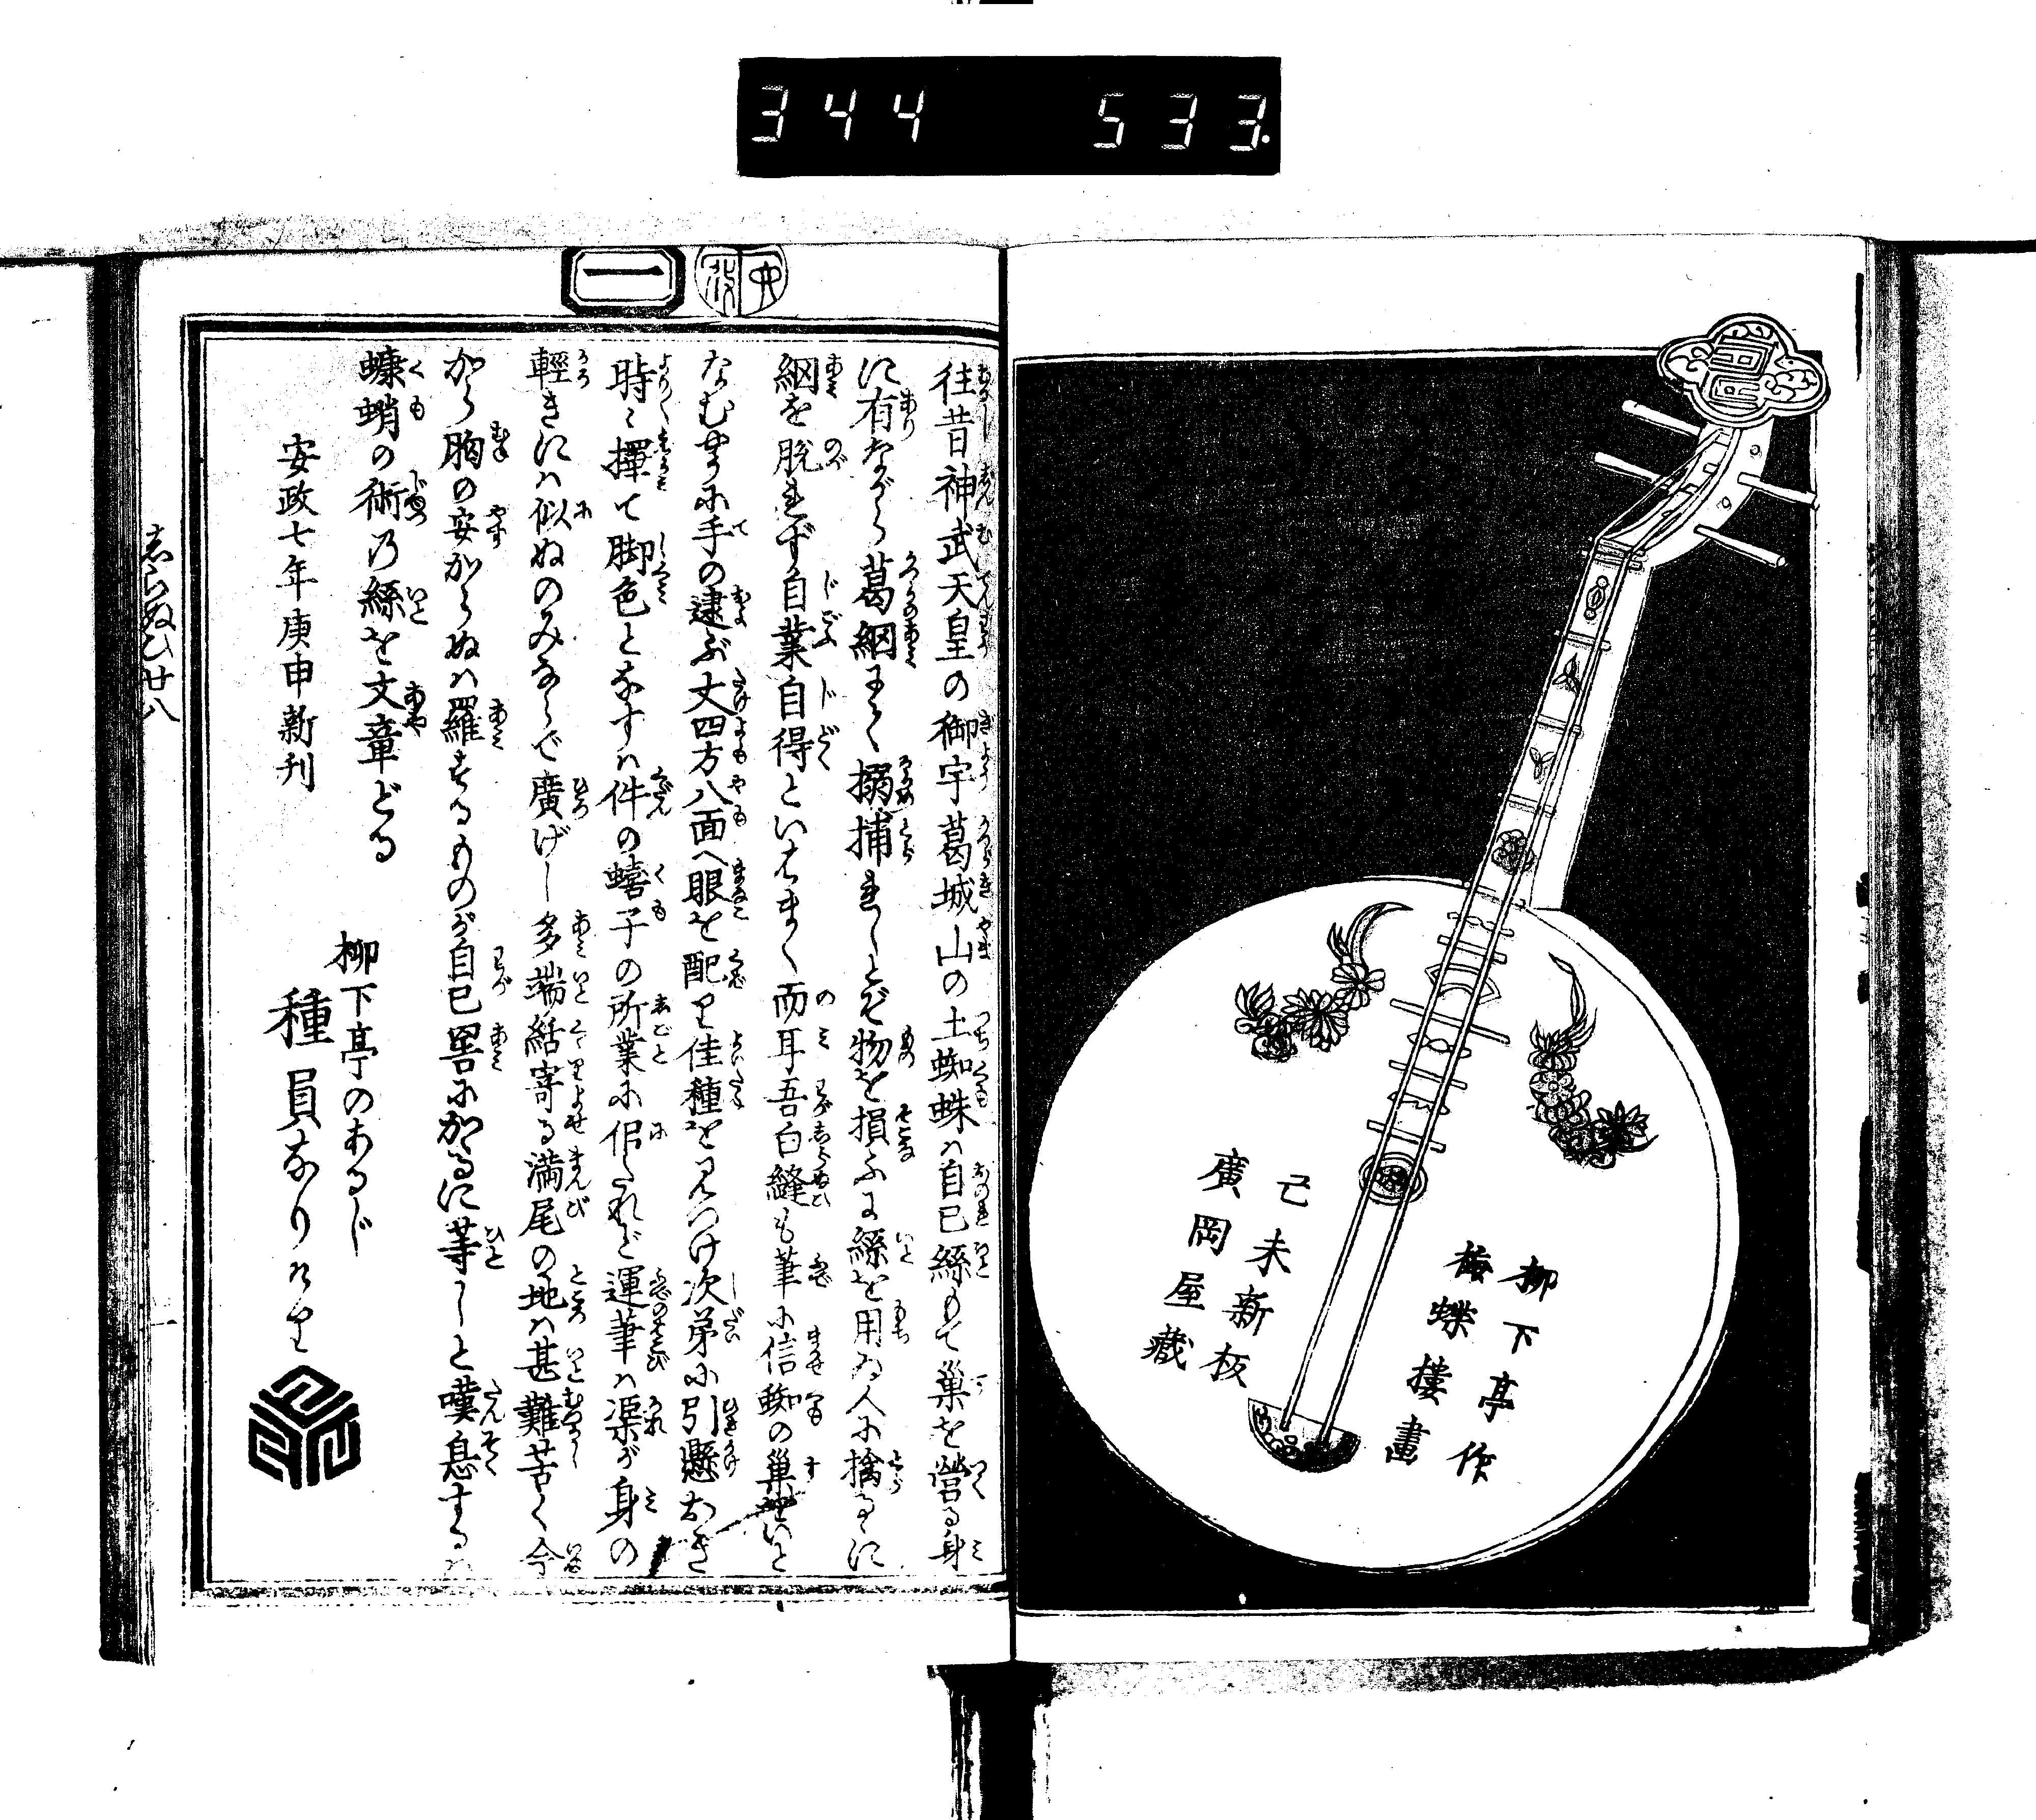 344 533.
柳下亭作
梅蝶樓畫
己未新板
廣岡屋藏
一
往昔神武天皇の御宇葛城山の土蜘蛛ハ自己絲もて巣を營る身
に有ながら葛網
搦捕
とぞ物を損ふ
絲を用ゐ人に擒るゝに
網を脱れず自業自得といはまく而耳吾白縫も筆に信蜘の巣
手の逮ぶ丈四方八面へ眼を配り佳種を見つけ次第に引懸おき
時〻擇て脚色となすハ件の蟢子の所業に似たれど運筆ハ渠が身の
輕きにハ似ぬのみならで廣げし多端結寄る満尾の地ハ甚難苦く今
から胸の安からぬハ羅するものが自己罟にかゝるに等しと嘆息するハ
蠊蛸の術の絲を文章どる
柳下亭のあるじ
種員なりけり
安政七年庚申新刊
志らぬひ廿八